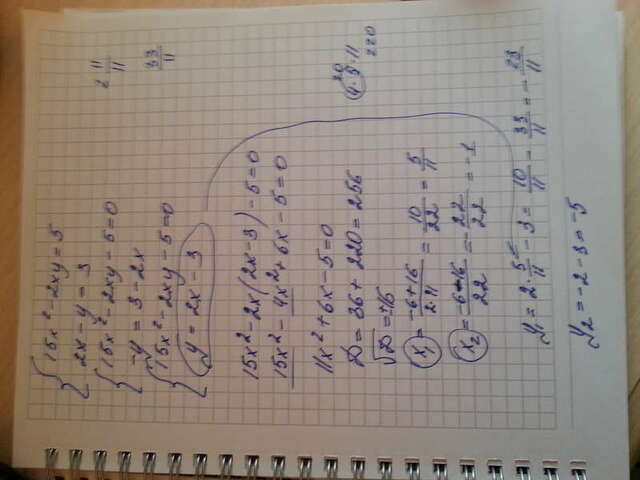 { 15x² - 2xy = 5
{ 2x - y = 3
{ 15x² - 2xy - 5 = 0
{ -y = 3 - 2x
{ 15x² - 2xy - 5 = 0
{ y = 2x - 3
15x² - 2x(2x - 3) - 5 = 0
15x² - 4x² + 6x - 5 = 0
11x² + 6x - 5 = 0
D = 36 + 220 = 256
√D = ±16
x₁ = (-6 + 16)/(2·11) = 10/22 = 5/11
x₂ = (-6 - 16)/22 = -22/22 = -1
y₁ = 2·5/11 - 3 = 10/11 - 33/11 = -23/11
y₂ = -2 - 3 = -5
2 11/11
33/11
20
4·5·11
220